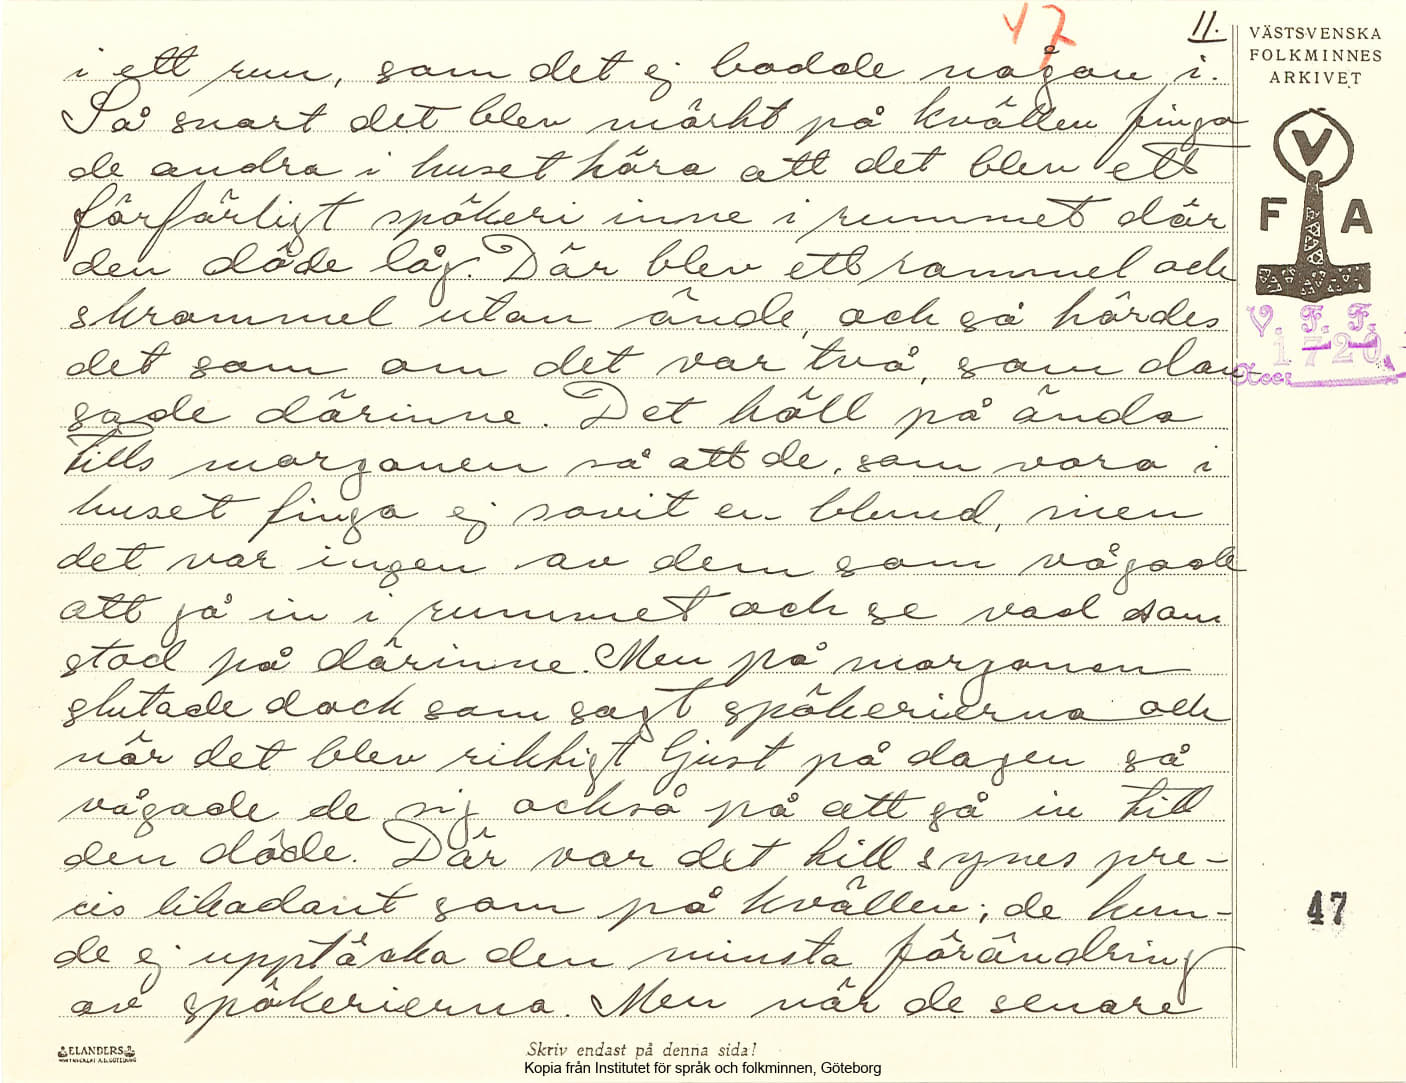 47
11.
VÄSTSVENSKA
FOLKMINNES
ARKIVET
i ett rum, som det ej bodde någon i.
Så snart det blev mörkt på kvällen finga
de andra i huset höra att det blev ett
förfärligt spökeri inne i rummet där
den döde låg. Där blev ett rammel och
skrammel utan ände, och så hördes
det som om det var två, som dan-
sade därinne. Det höll på ända
tills morgonen så att de, som voro i
huset finga ej sovit en blund, men
det var ingen av dem som vågade
att gå in i rummet och se vad som
stod på därinne. Men på morgonen
slutade dock som sagt spökerierna och
när det blev riktigt ljust på dagen så
vågade de sig också på att gå in till
den döde. Där var det till synes pre-
cis likadant som på kvällen; de kun-
de ej upptäcka den minsta förändring
av spökerierna. Men när de senare
V
F A
V. F. F.
1720
Acc:
47
ELANDERS
Skriv endast på denna sida!
Kopia från Institutet för språk och folkminnen, Göteborg